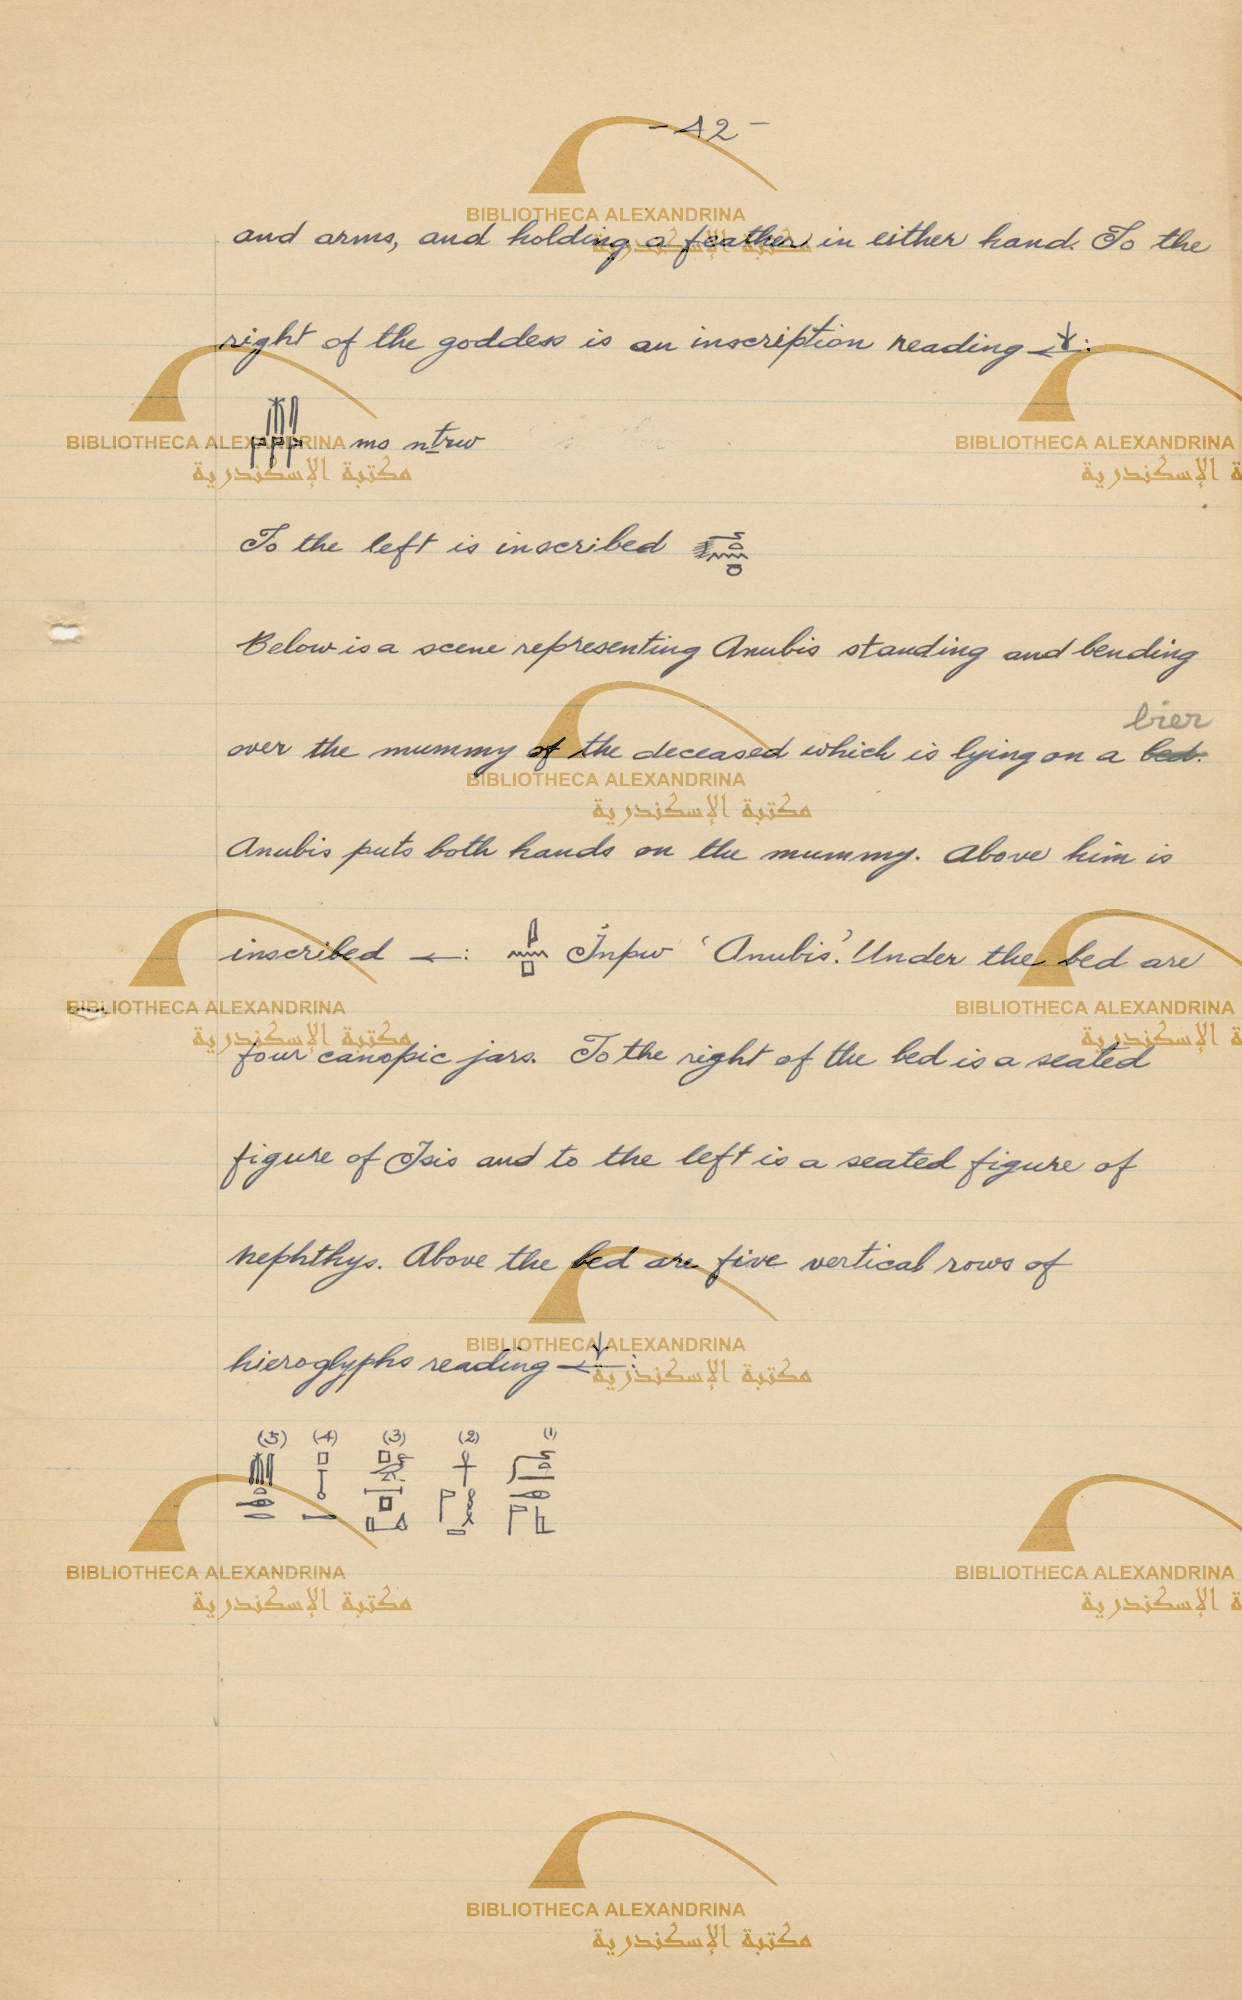 - 42 -
and arms, and holding a feather in either hand. To the
right of the goddess is an inscription reading ←↓:
ms nṯrw
To the left is inscribed
Below is a scene representing Anubis standing and bending
bier
over the mummy of the deceased which is lying on a bed.
Anubis puts both hands on the mummy. Above him is
inscribed ←: Inpw 'Anubis'. Under the bed are
four canopic jars. To the right of the bed is a seated
figure of Isis and to the left is a seated figure of
Nephthys. Above the bed are five vertical rows of
hieroglyphs reading ←↓:
(5) (4) (3) (2) (1)
BIBLIOTHECA ALEXANDRINA
مكتبة الإسكندرية